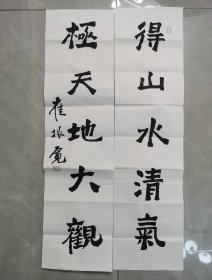 得山水清氣
極天地大觀
崔振寬